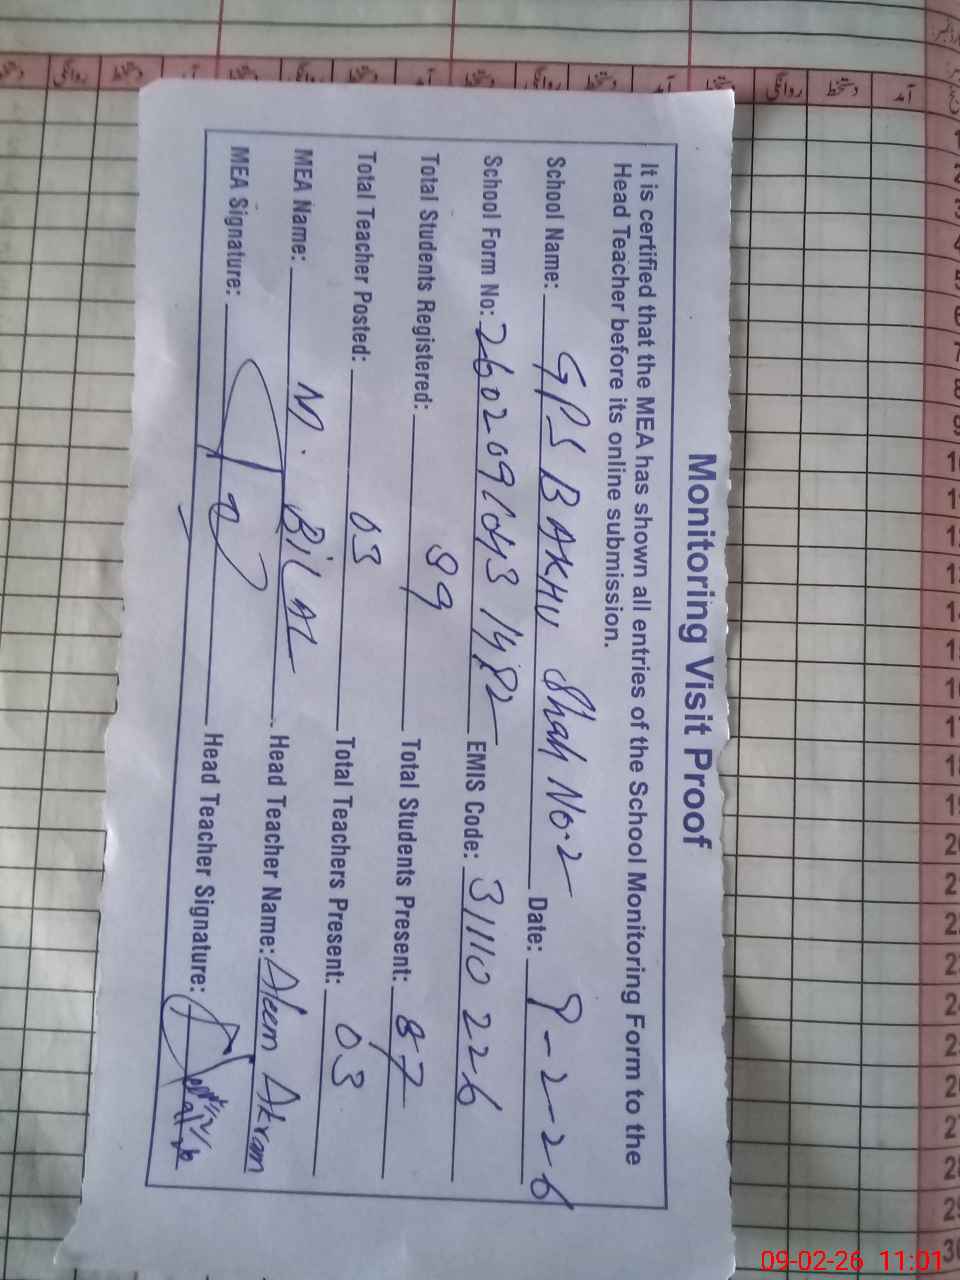 Monitoring Visit Proof
It is certified that the MEA has shown all entries of the School Monitoring Form to the
Head Teacher before its online submission.
School Name: GPS BAKHU Shah No.2 Date: 9-2-26
School Form No: EMIS Code: 31110226
Total Students Registered: 99 Total Students Present: 87
Total Teacher Posted: 03 Total Teachers Present: 03
MEA Name: M. BiLAL Head Teacher Name: Aleem Akram
MEA Signature: Head Teacher Signature:
آمد دستخط روانگی
09-02-26 11:01